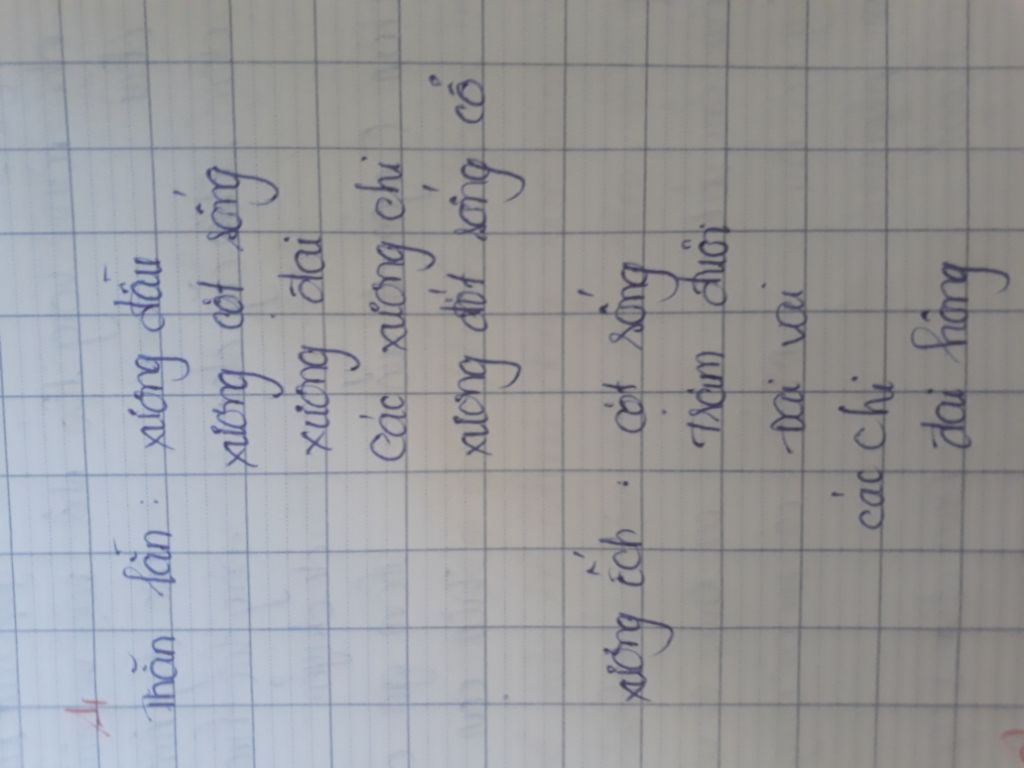 Thằn lằn : xương đầu
xương cột sống
xương đai
Các xương chi
xương đốt sống cổ
xương ếch : cột sống
Trâm đuôi
Đai vai
các chi
đai hông